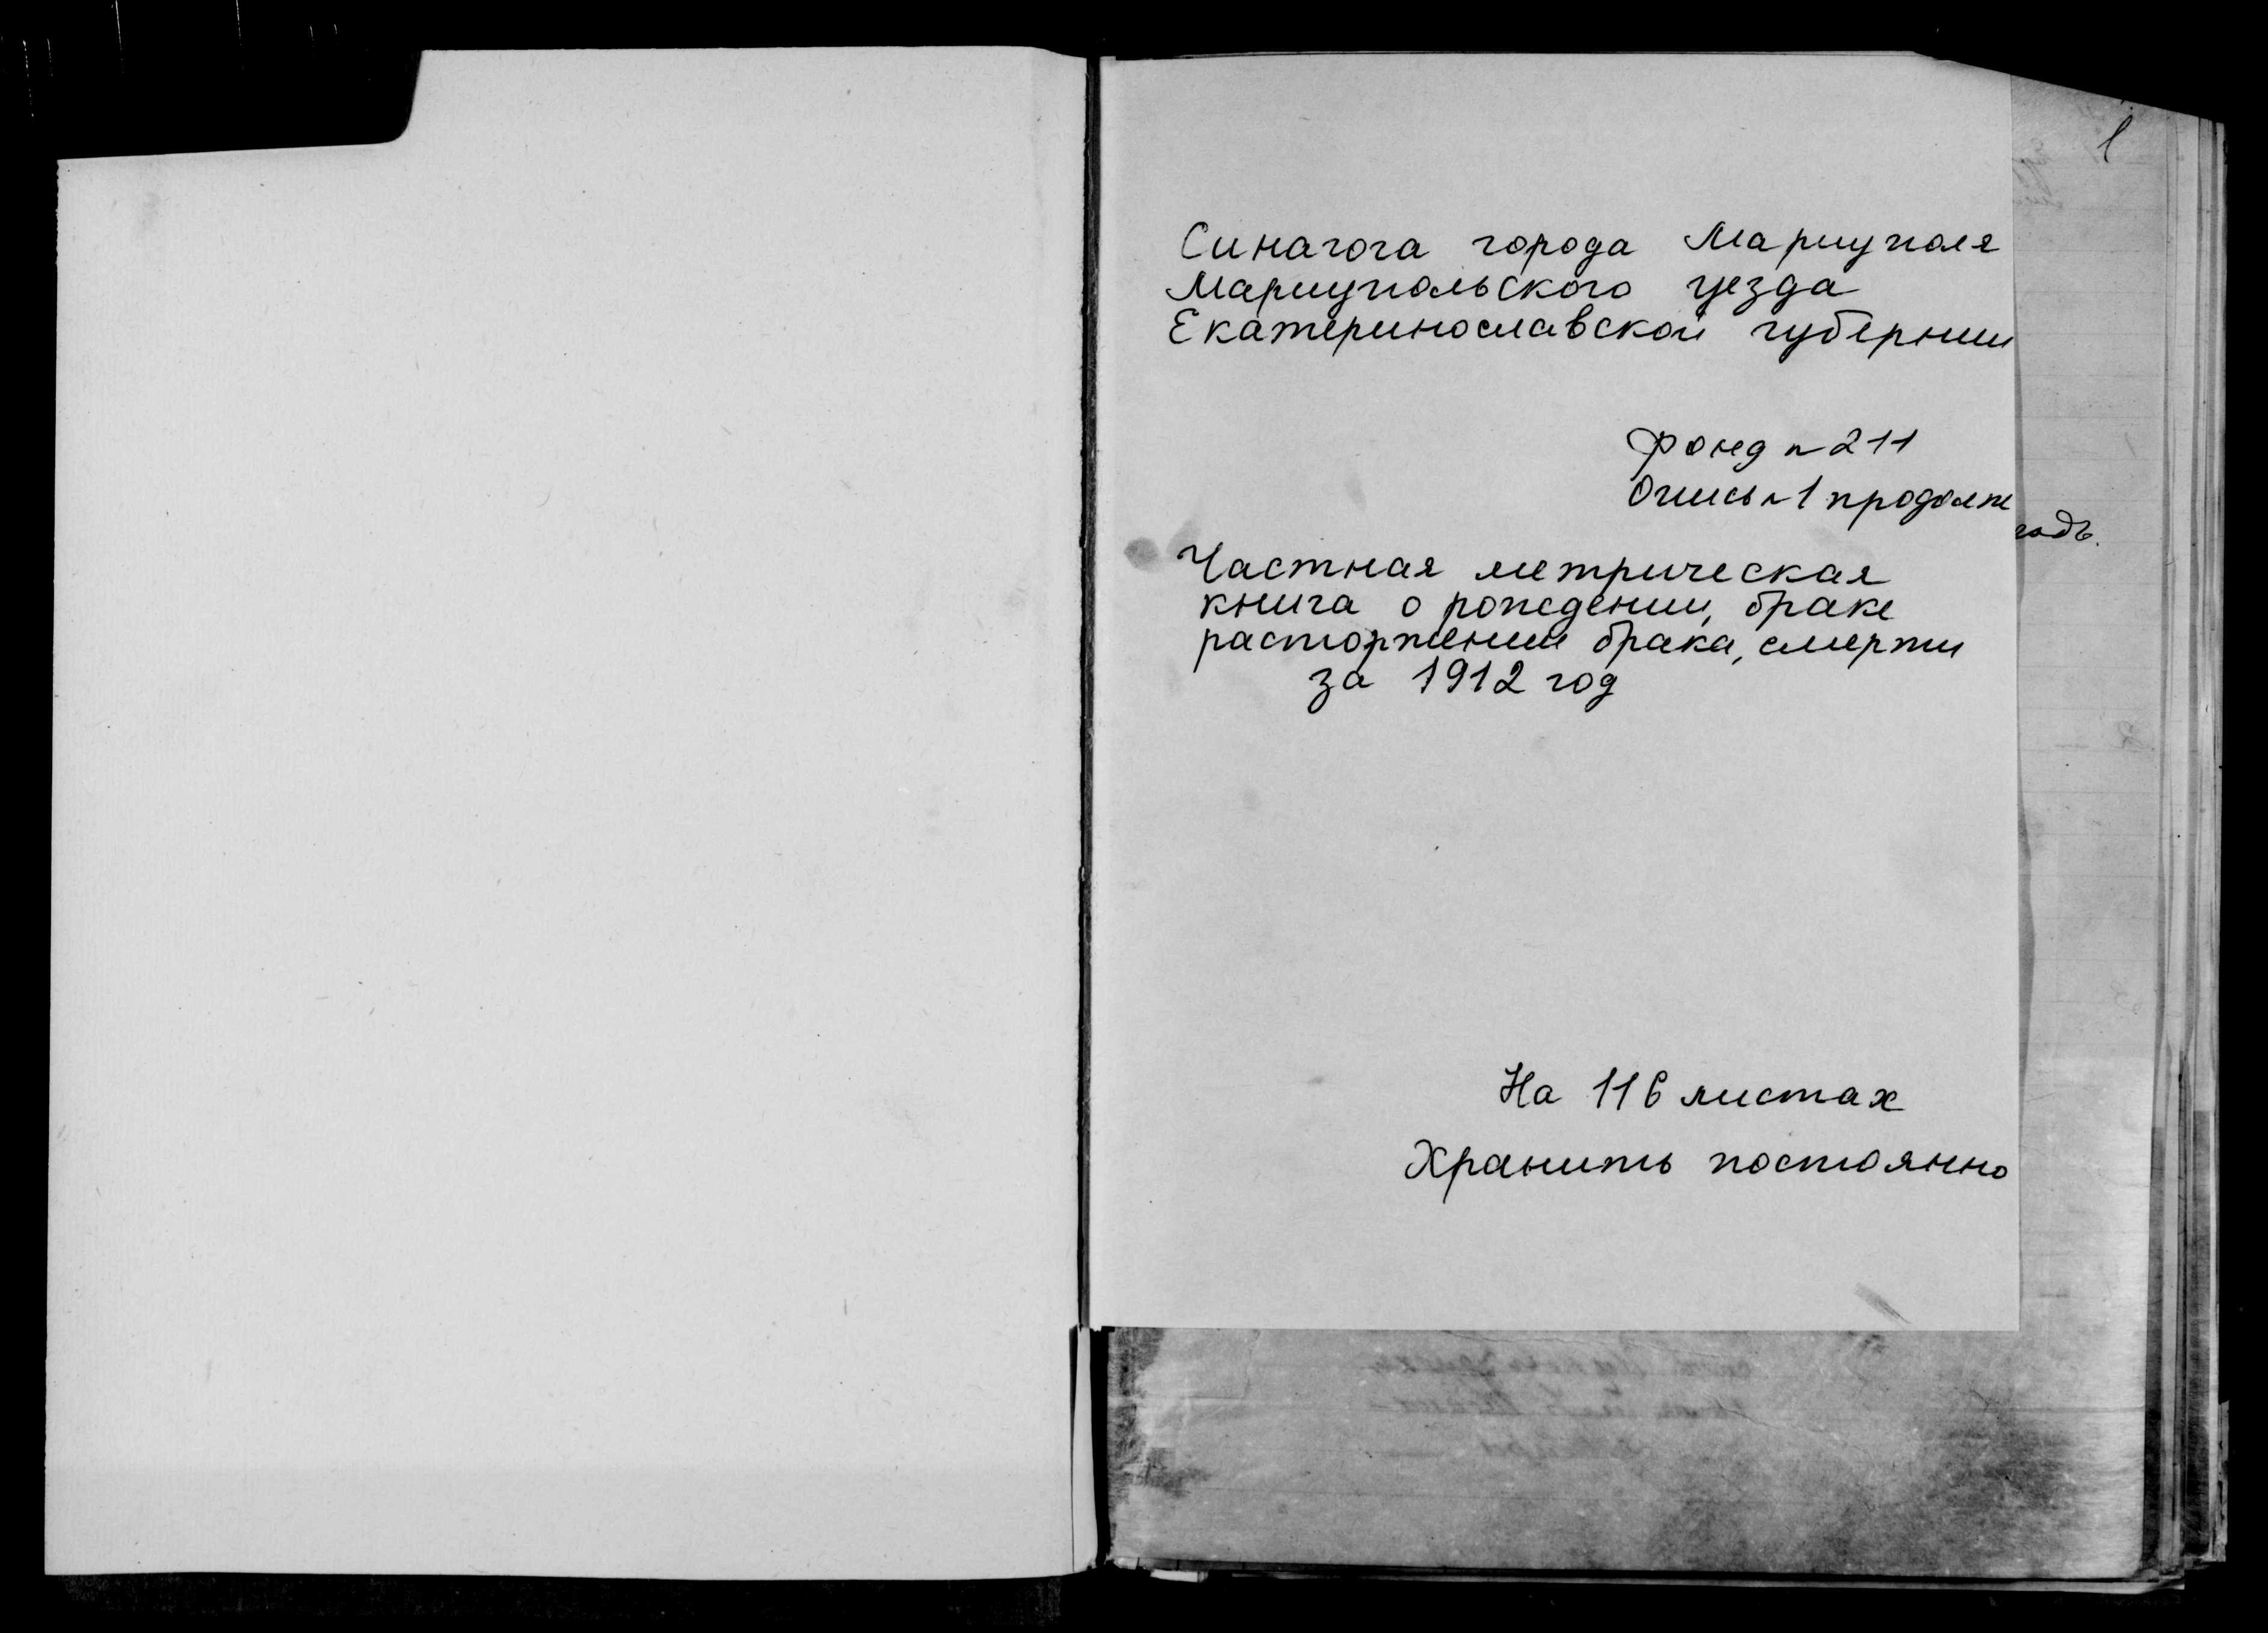 1
Синагога города Мариуполя
Мариупольского уезда
Екатеринославской губернии
Фонд № 211
Опись № 1 продолж
годъ.
Частная метрическая
книга о рождении, браке
расторжении брака, смерти
за 1912 год
На 116 листах
Хранить постоянно